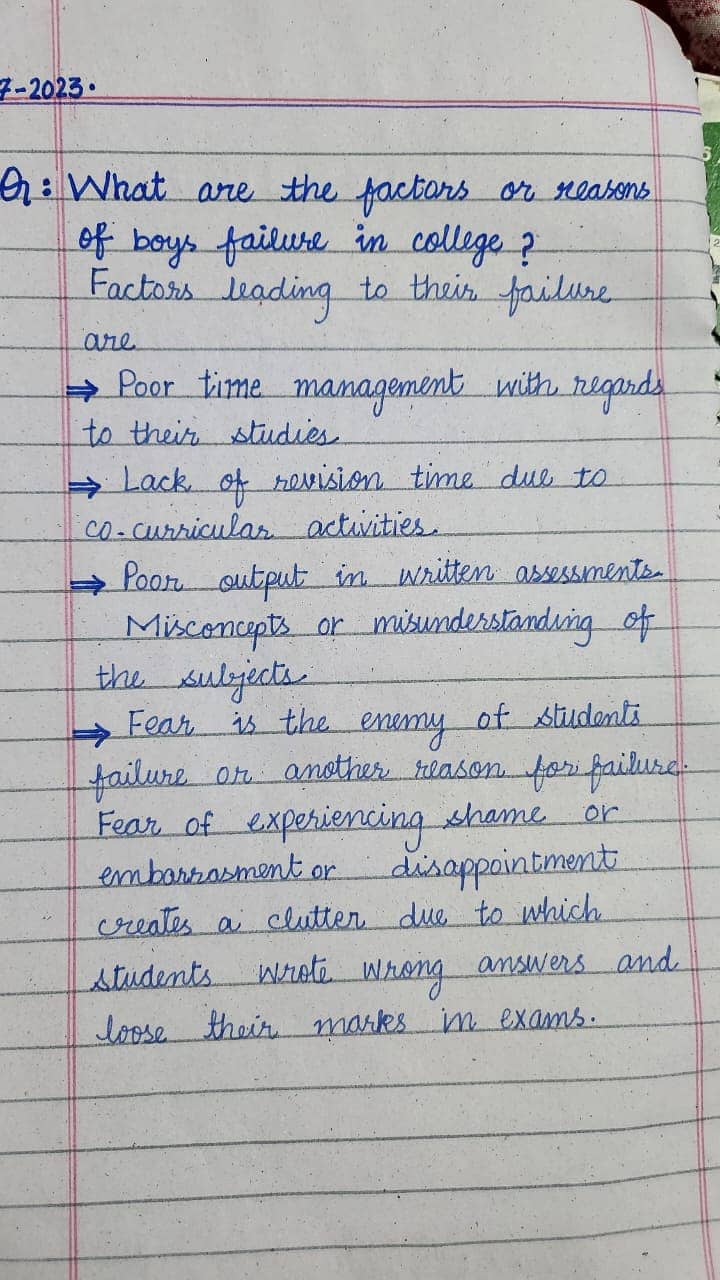 7-2023.
Q: What are the factors or reasons
of boys failure in college ?
Factors leading to their failure
are
⇒ Poor time management with regards
to their studies
⇒ Lack of revision time due to
co-curricular activities.
⇒ Poor output in written assessments.
Misconcepts or misunderstanding of
the subjects
⇒ Fear is the enemy of students
failure or another reason for failure.
Fear of experiencing shame or
embarrasment or disappointment
creates a clutter due to which
students wrote wrong answers and
loose their marks in exams.